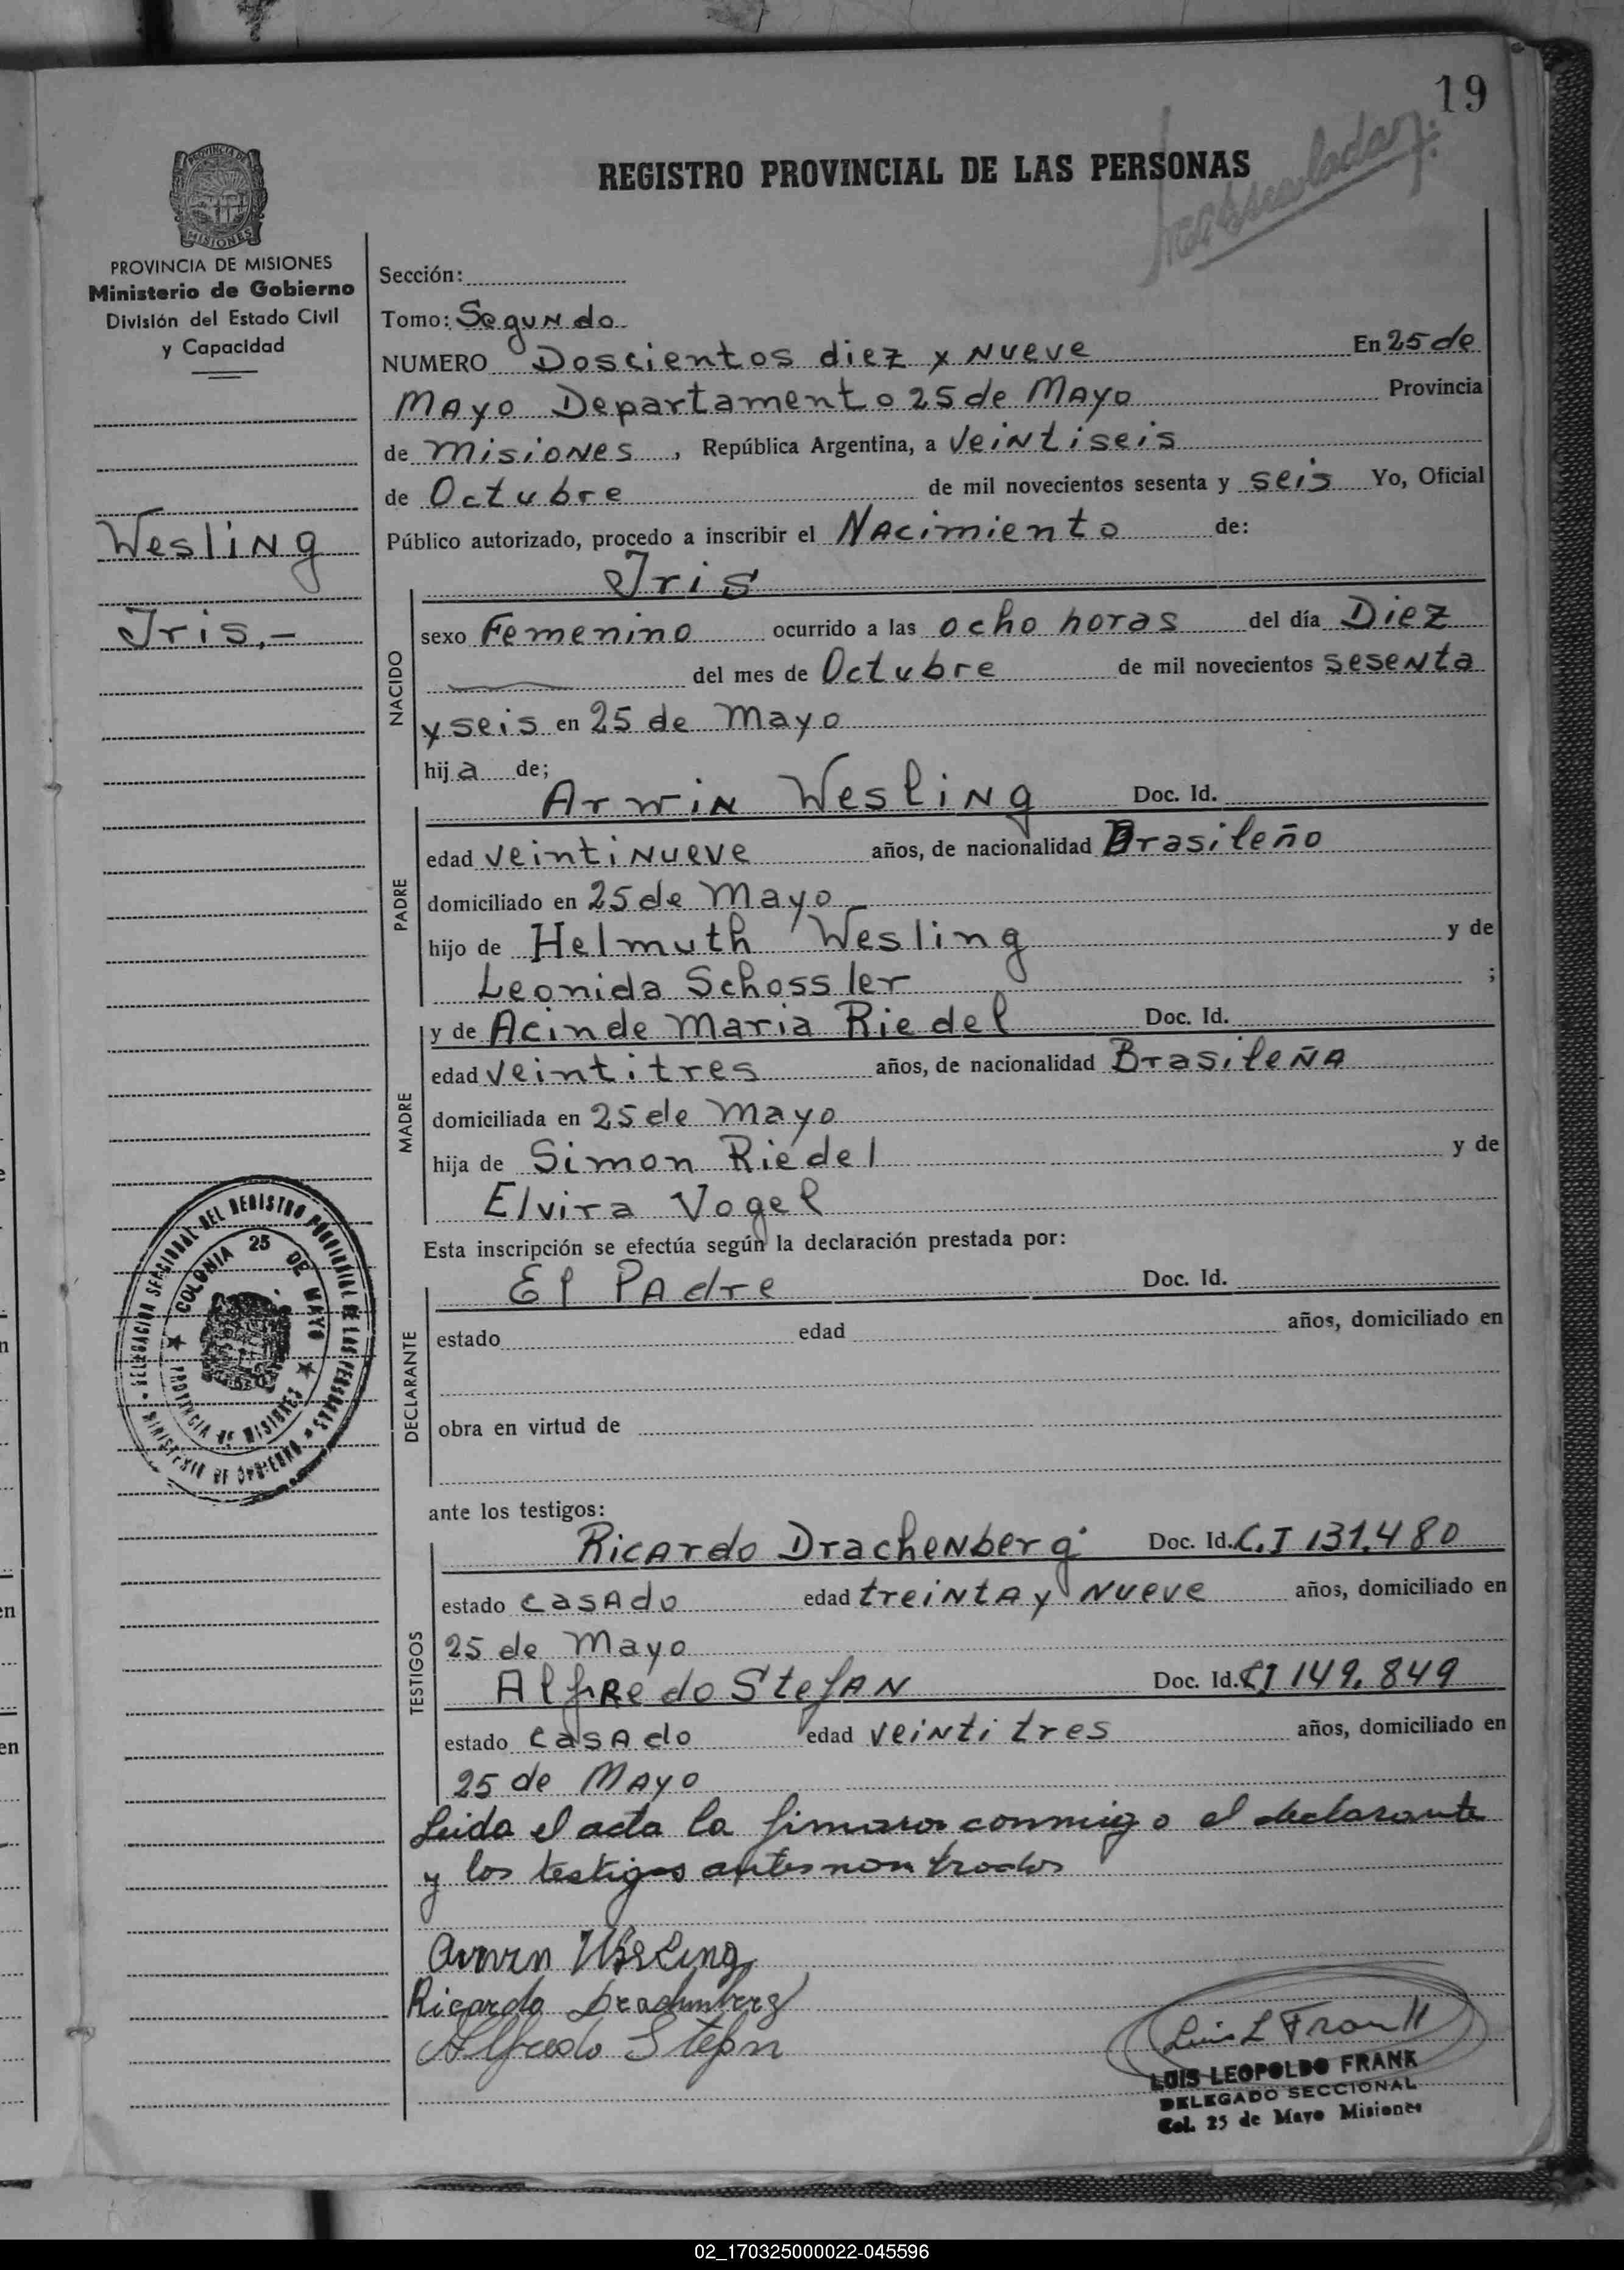 19
REGISTRO PROVINCIAL DE LAS PERSONAS
PROVINCIA DE
MISIONES
PROVINCIA DE MISIONES
Ministerio de Gobierno
División del Estado Civil
y Capacidad
Wesling
Iris.-
Sección:
Tomo: Segundo
NUMERO Doscientos diez y Nueve En 25 de
Mayo Departamento 25 de Mayo Provincia
de Misiones, República Argentina, a Veintiseis
de Octubre de mil novecientos sesenta y seis Yo, Oficial
Público autorizado, procedo a inscribir el Nacimiento de:
Iris
NACIDO
sexo Femenino ocurrido a las ocho horas del día Diez
del mes de Octubre de mil novecientos sesenta
y seis en 25 de Mayo
hija de;
Arwin Wesling Doc. Id.
PADRE
edad veintinueve años, de nacionalidad Brasileño
domiciliado en 25 de Mayo
hijo de Helmuth Wesling y de
Leonida Schossler ;
y de Acinde Maria Riedel Doc. Id.
MADRE
edad veintitres años, de nacionalidad Brasileña
domiciliada en 25 de Mayo
hija de Simon Riedel y de
Elvira Vogel
Esta inscripción se efectúa según la declaración prestada por:
El Padre Doc. Id.
DECLARANTE
estado edad años, domiciliado en
obra en virtud de
DELEGACION SECCIONAL DEL REGISTRO PROVINCIAL DE LAS PERSONAS
MINISTERIO DE GOBIERNO
COLONIA 25 DE MAYO
PROVINCIA DE MISIONES
ante los testigos:
Ricardo Drachenberg Doc. Id. C.I 131.480
TESTIGOS
estado casado edad treinta y nueve años, domiciliado en
25 de Mayo
Alfredo Stefan Doc. Id. CI 149.849
estado casado edad veintitres años, domiciliado en
25 de Mayo
Leida el acta la firmaron conmigo el declarante
y los testigos antes nombrados
Arwin Wesling
Ricardo Drachenberg
Alfredo Stefan
Luis L Frank
LUIS LEOPOLDO FRANK
DELEGADO SECCIONAL
Col. 25 de Mayo Misiones
02_170325000022-045596